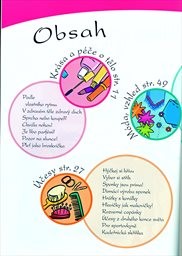 Obsah
Krása a péče o tělo str. 11
Podle
vlastního rytmu
V zdravém těle zdravý duch
Sprcha nebo koupel?
Chvilka něhy!
Je libo parfém?
Pozor na slunce!
Pleť jako broskvička
Móda, vzhled str. 49
Účesy str. 27
Hýčkej si hlavu
Vyber si střih
Sponky jsme prima!
Domácí výroba sponek
Hrátky s korálky
Hlavičky jak makovičky!
Rozverné copánky
Účesy z druhého konce světa
Pro sportovkyně
Kadeřnická školička